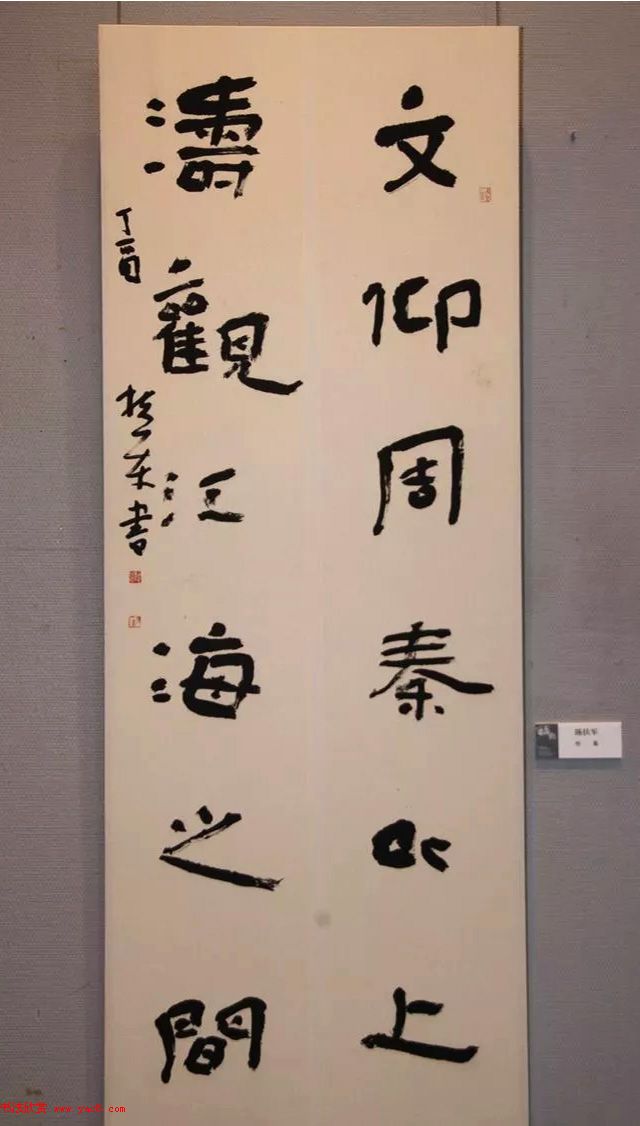 文仰周秦以上
濤觀江海之間
丁酉
扶軍書
陈扶军
书法欣赏 www.yac8.com